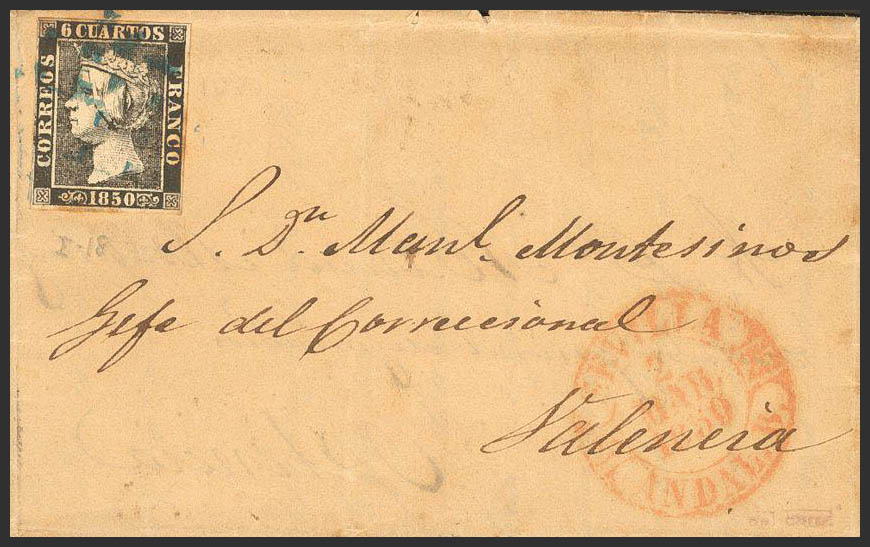 6 CUARTOS
CORREOS
FRANCO
1850
S. Dn. Manl. Montesinos
Gefe del Correccional
Valencia
SEVILLA
MAR.
1850
ANDAL. B.